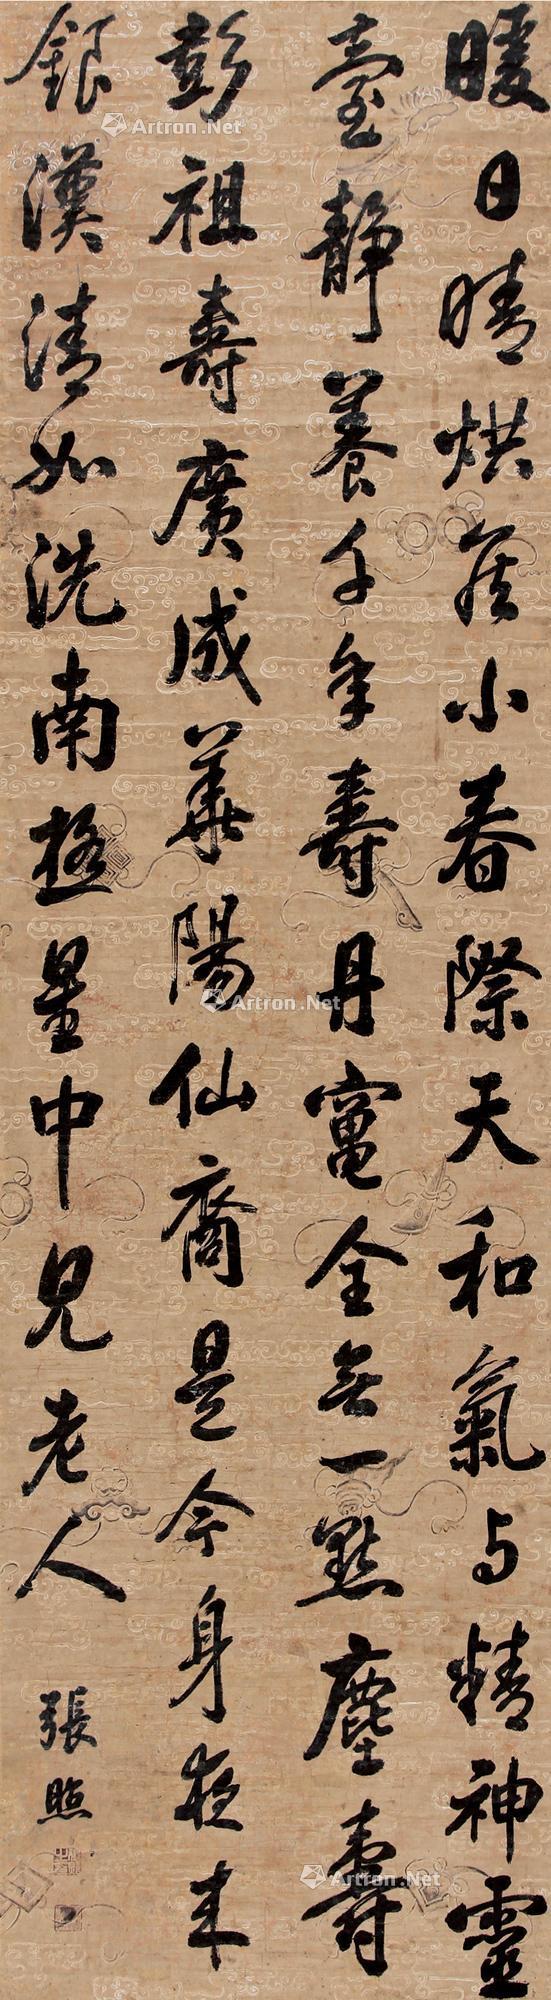 暖日晴烘候小春際天和氣与精神靈
臺靜養千年壽丹竃全無一點塵壽
彭祖壽廣成華陽仙裔是今身夜来
銀漢清如洗南極星中見老人
張照
Artron.Net
Artron.Net
Artron.Net
Artron.Net
Artron.Net
Artron.Net